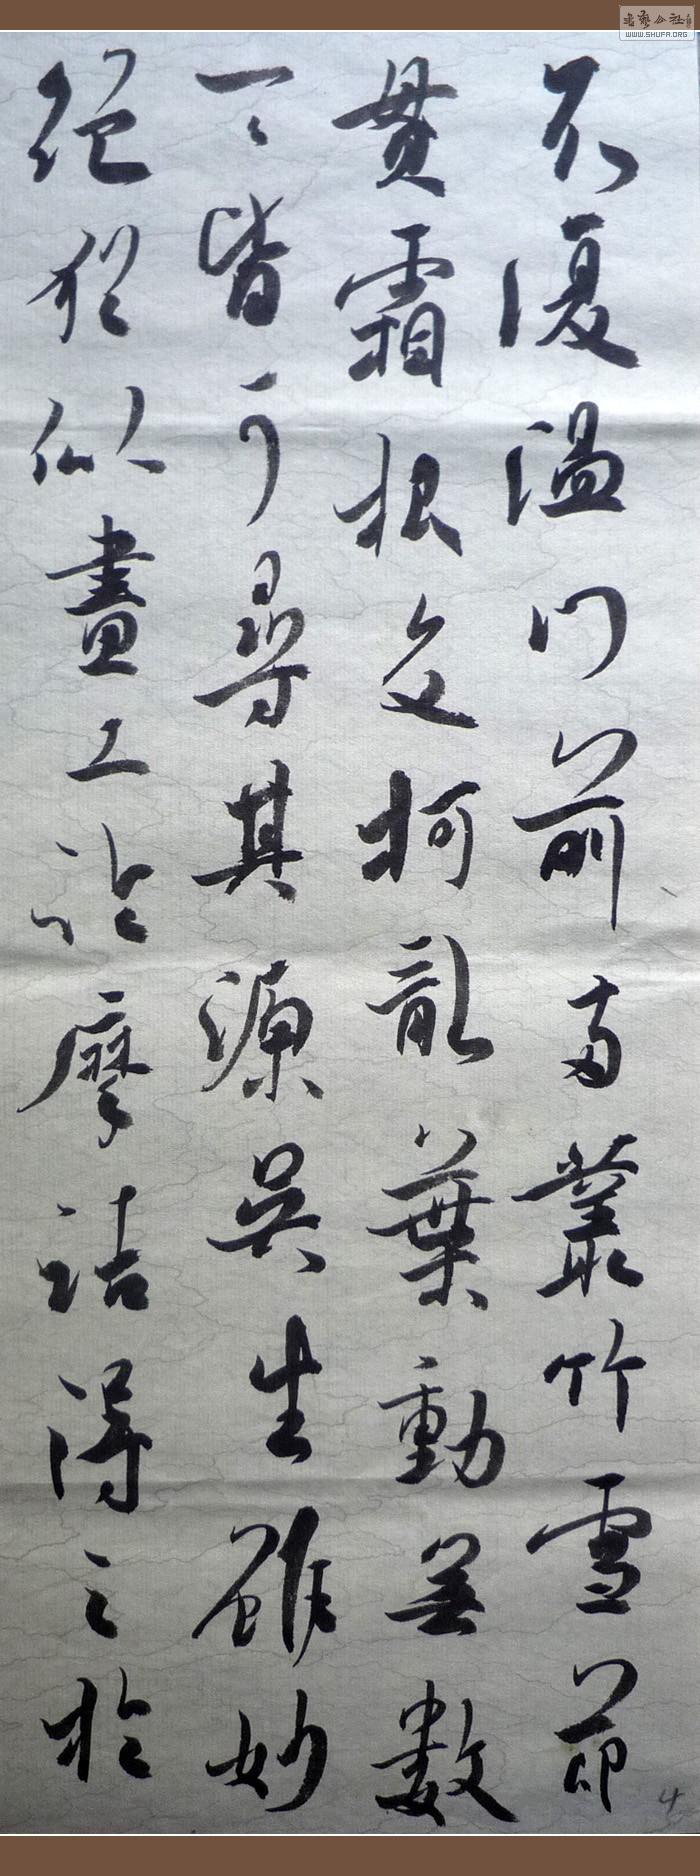 不復溫門前兩叢竹雪節
貫霜根交柯亂葉動無數
一々皆可尋其源吳生雖妙
絕猶似畫工論摩詰得之於
4
WWW.SHUFA.ORG